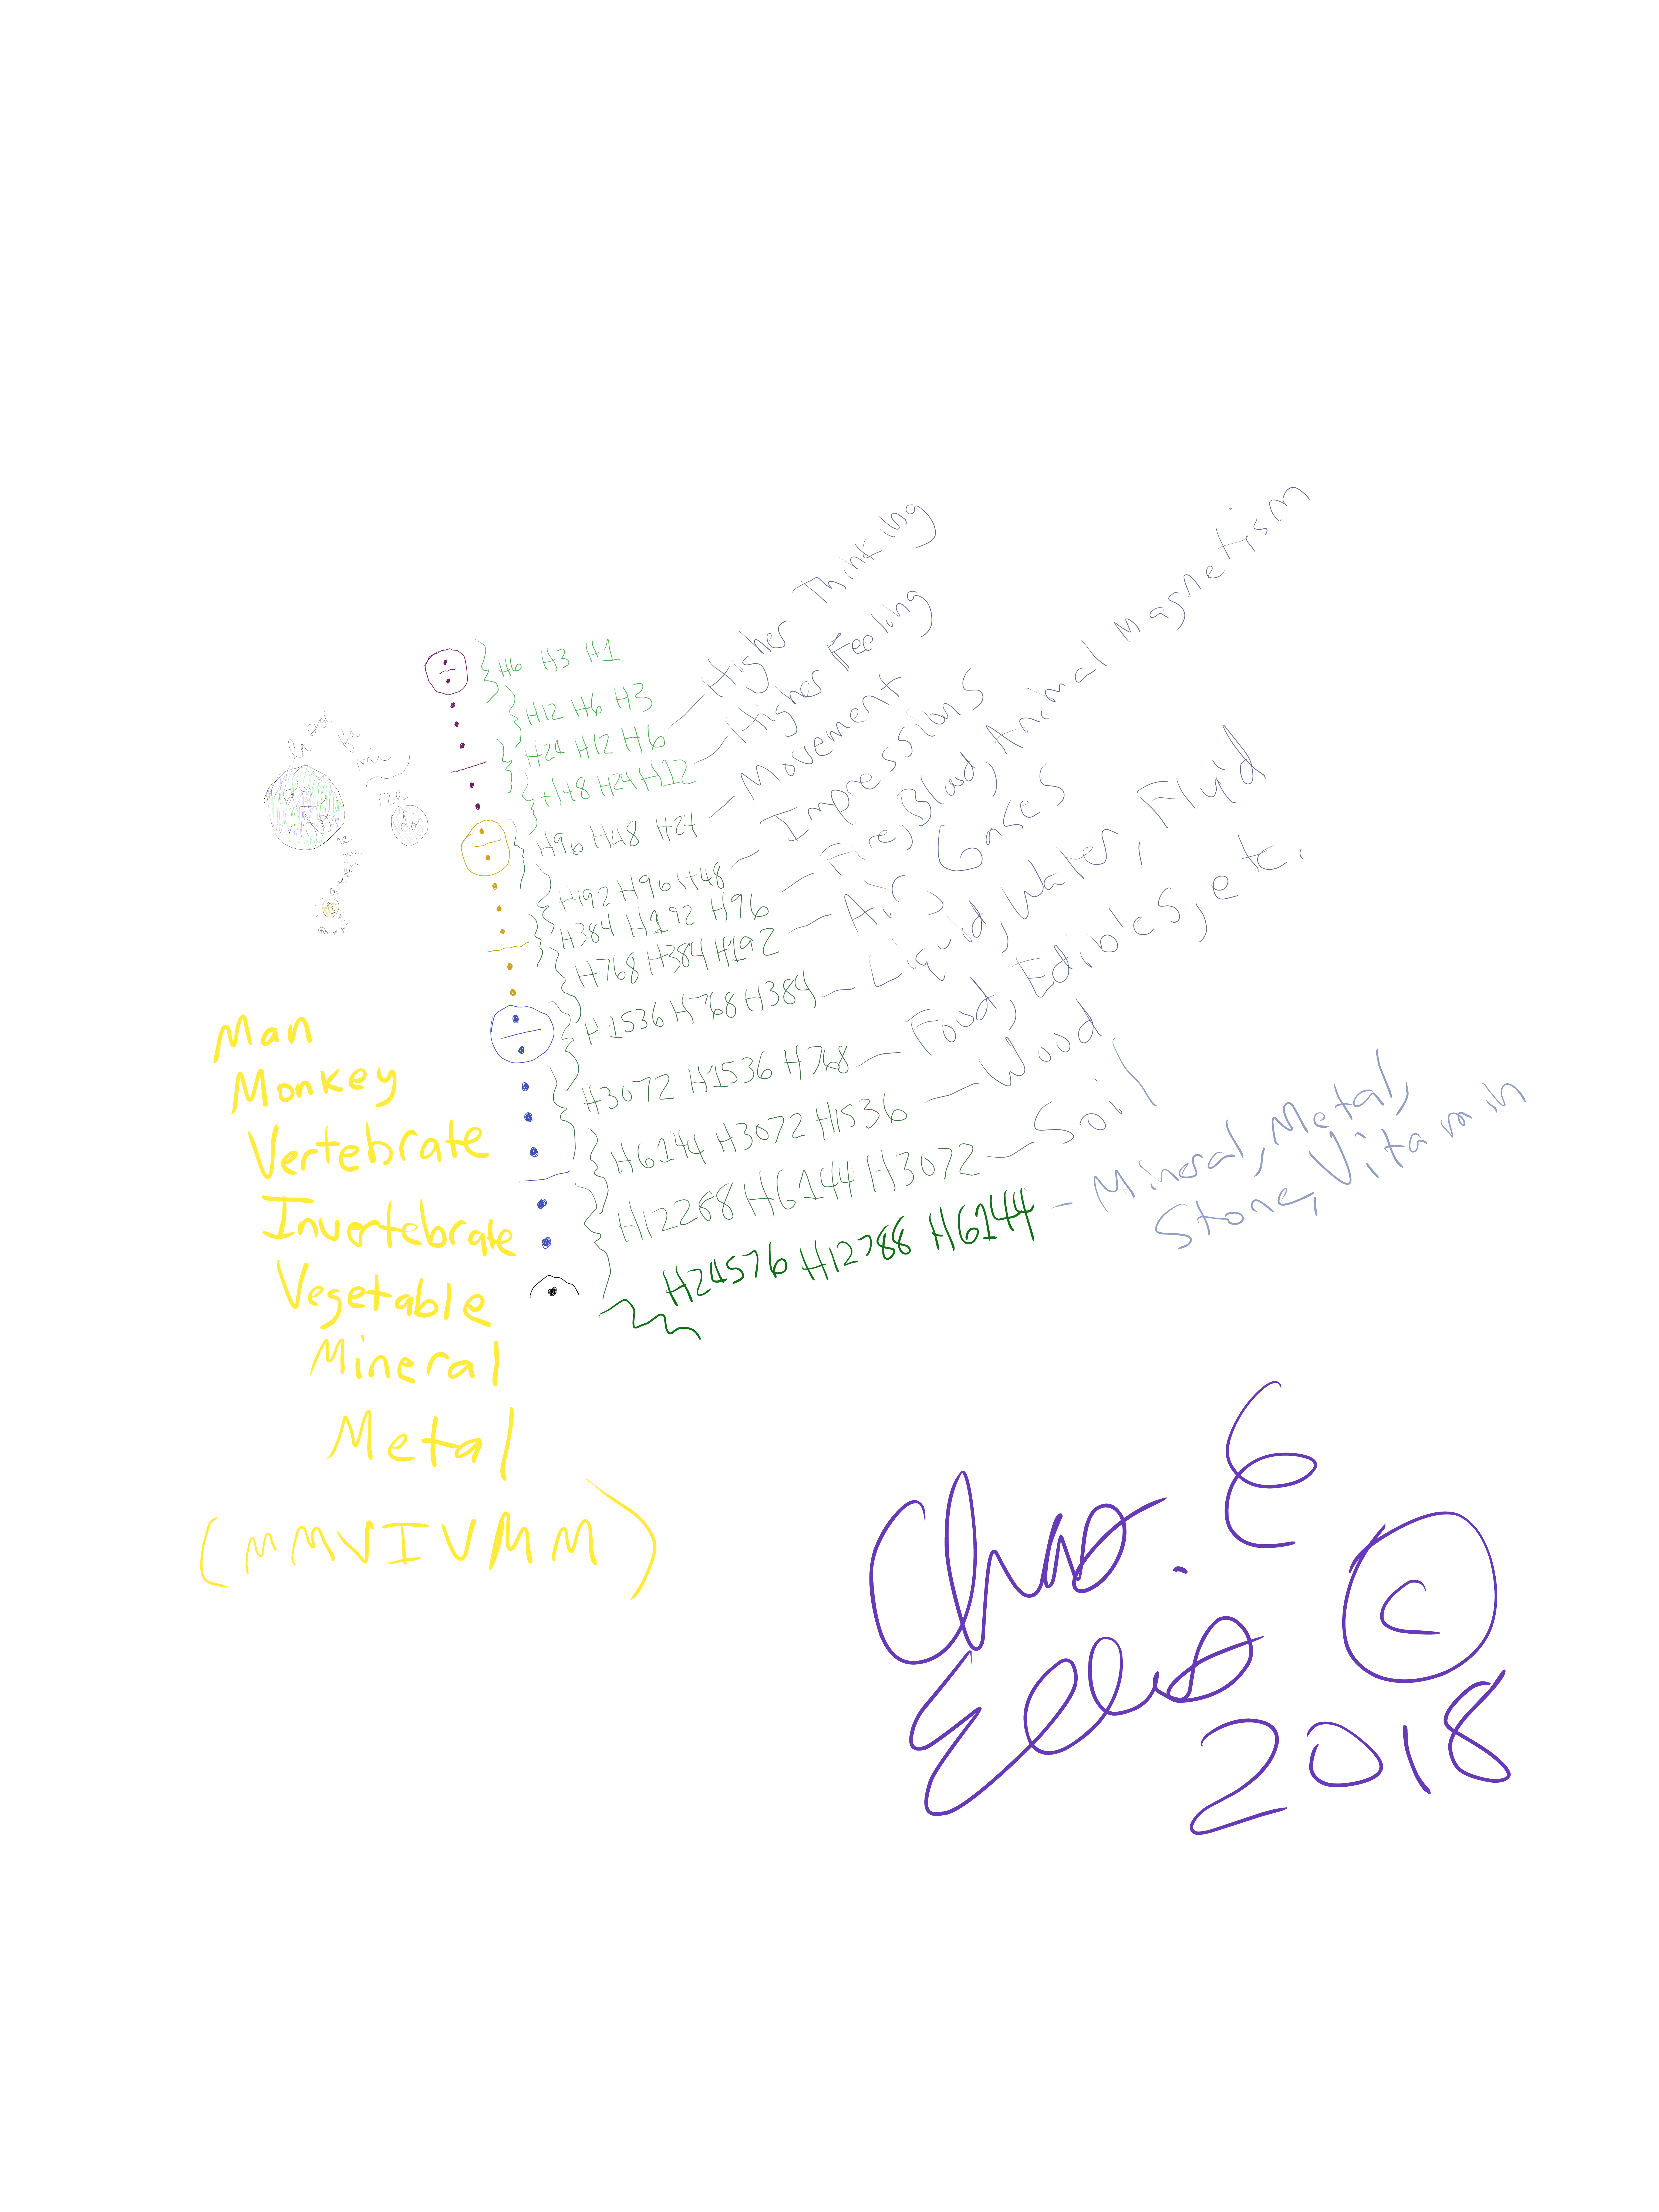 H6 H3 H1
H12 H6 H3
H24 H12 H6 — Higher Thinking
H48 H24 H12 — Higher Feeling
H96 H48 H24 — Movement
H192 H96 H48 — Impressions
H384 H192 H96 — Fire, Blud, Animal Magnetism
H768 H384 H192 — Air Gases
H1536 H768 H384 — Liquid, Water, Fluid
H3072 H1536 H768 — Food, Edibles, etc.
H6144 H3072 H1536 — Wood
H12288 H6144 H3072 — Soil
H24576 H12288 H6144 — Mineral, Metal,
Stone, Vitamin
la sol
fa
mi
re
do
Man
Monkey
Vertebrate
Invertebrate
Vegetable
Mineral
Metal
(MMVIVMM)
Chas. E
Ellis ©
2018